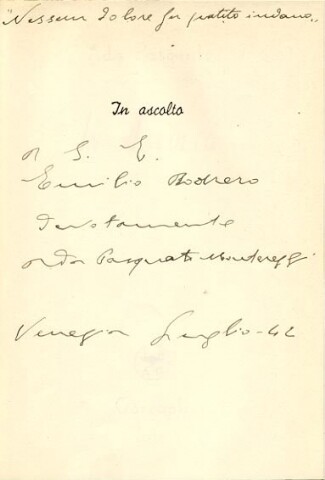 "Nessun dolore fu patito indano„
In ascolto
A S. E.
Emilio Bodrero
devotamente
Pasquati
Venezia Luglio - 42